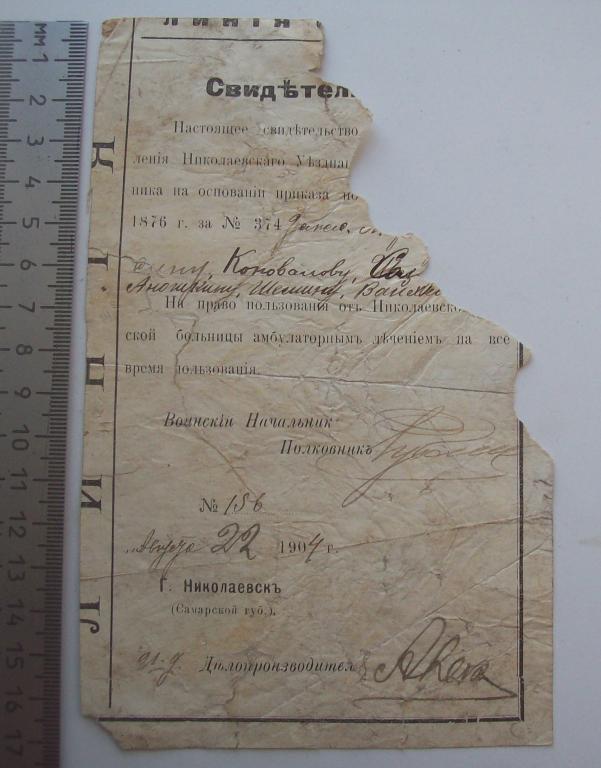 ЛИНІЯ
Свидѣтел
Настоящее свидѣтельство
ленія Николаевскаго Уѣзднаг
ника на основаніи приказа по
1876 г. за № 374
Коновалову,
Анохину, Шемину,
На право пользованія отъ Николаевско
ской больницы амбулаторнымъ лѣченіемъ на все
время пользованія.
Воинскій Начальник
Полковникъ
№ 156
Августа 22 1904 г.
Г. Николаевскъ
(Самарской губ.).
Дѣлопроизводител
ЛИНІЯ
мм 1 2 3 4 5 6 7 8 9 10 11 12 13 14 15 16 17